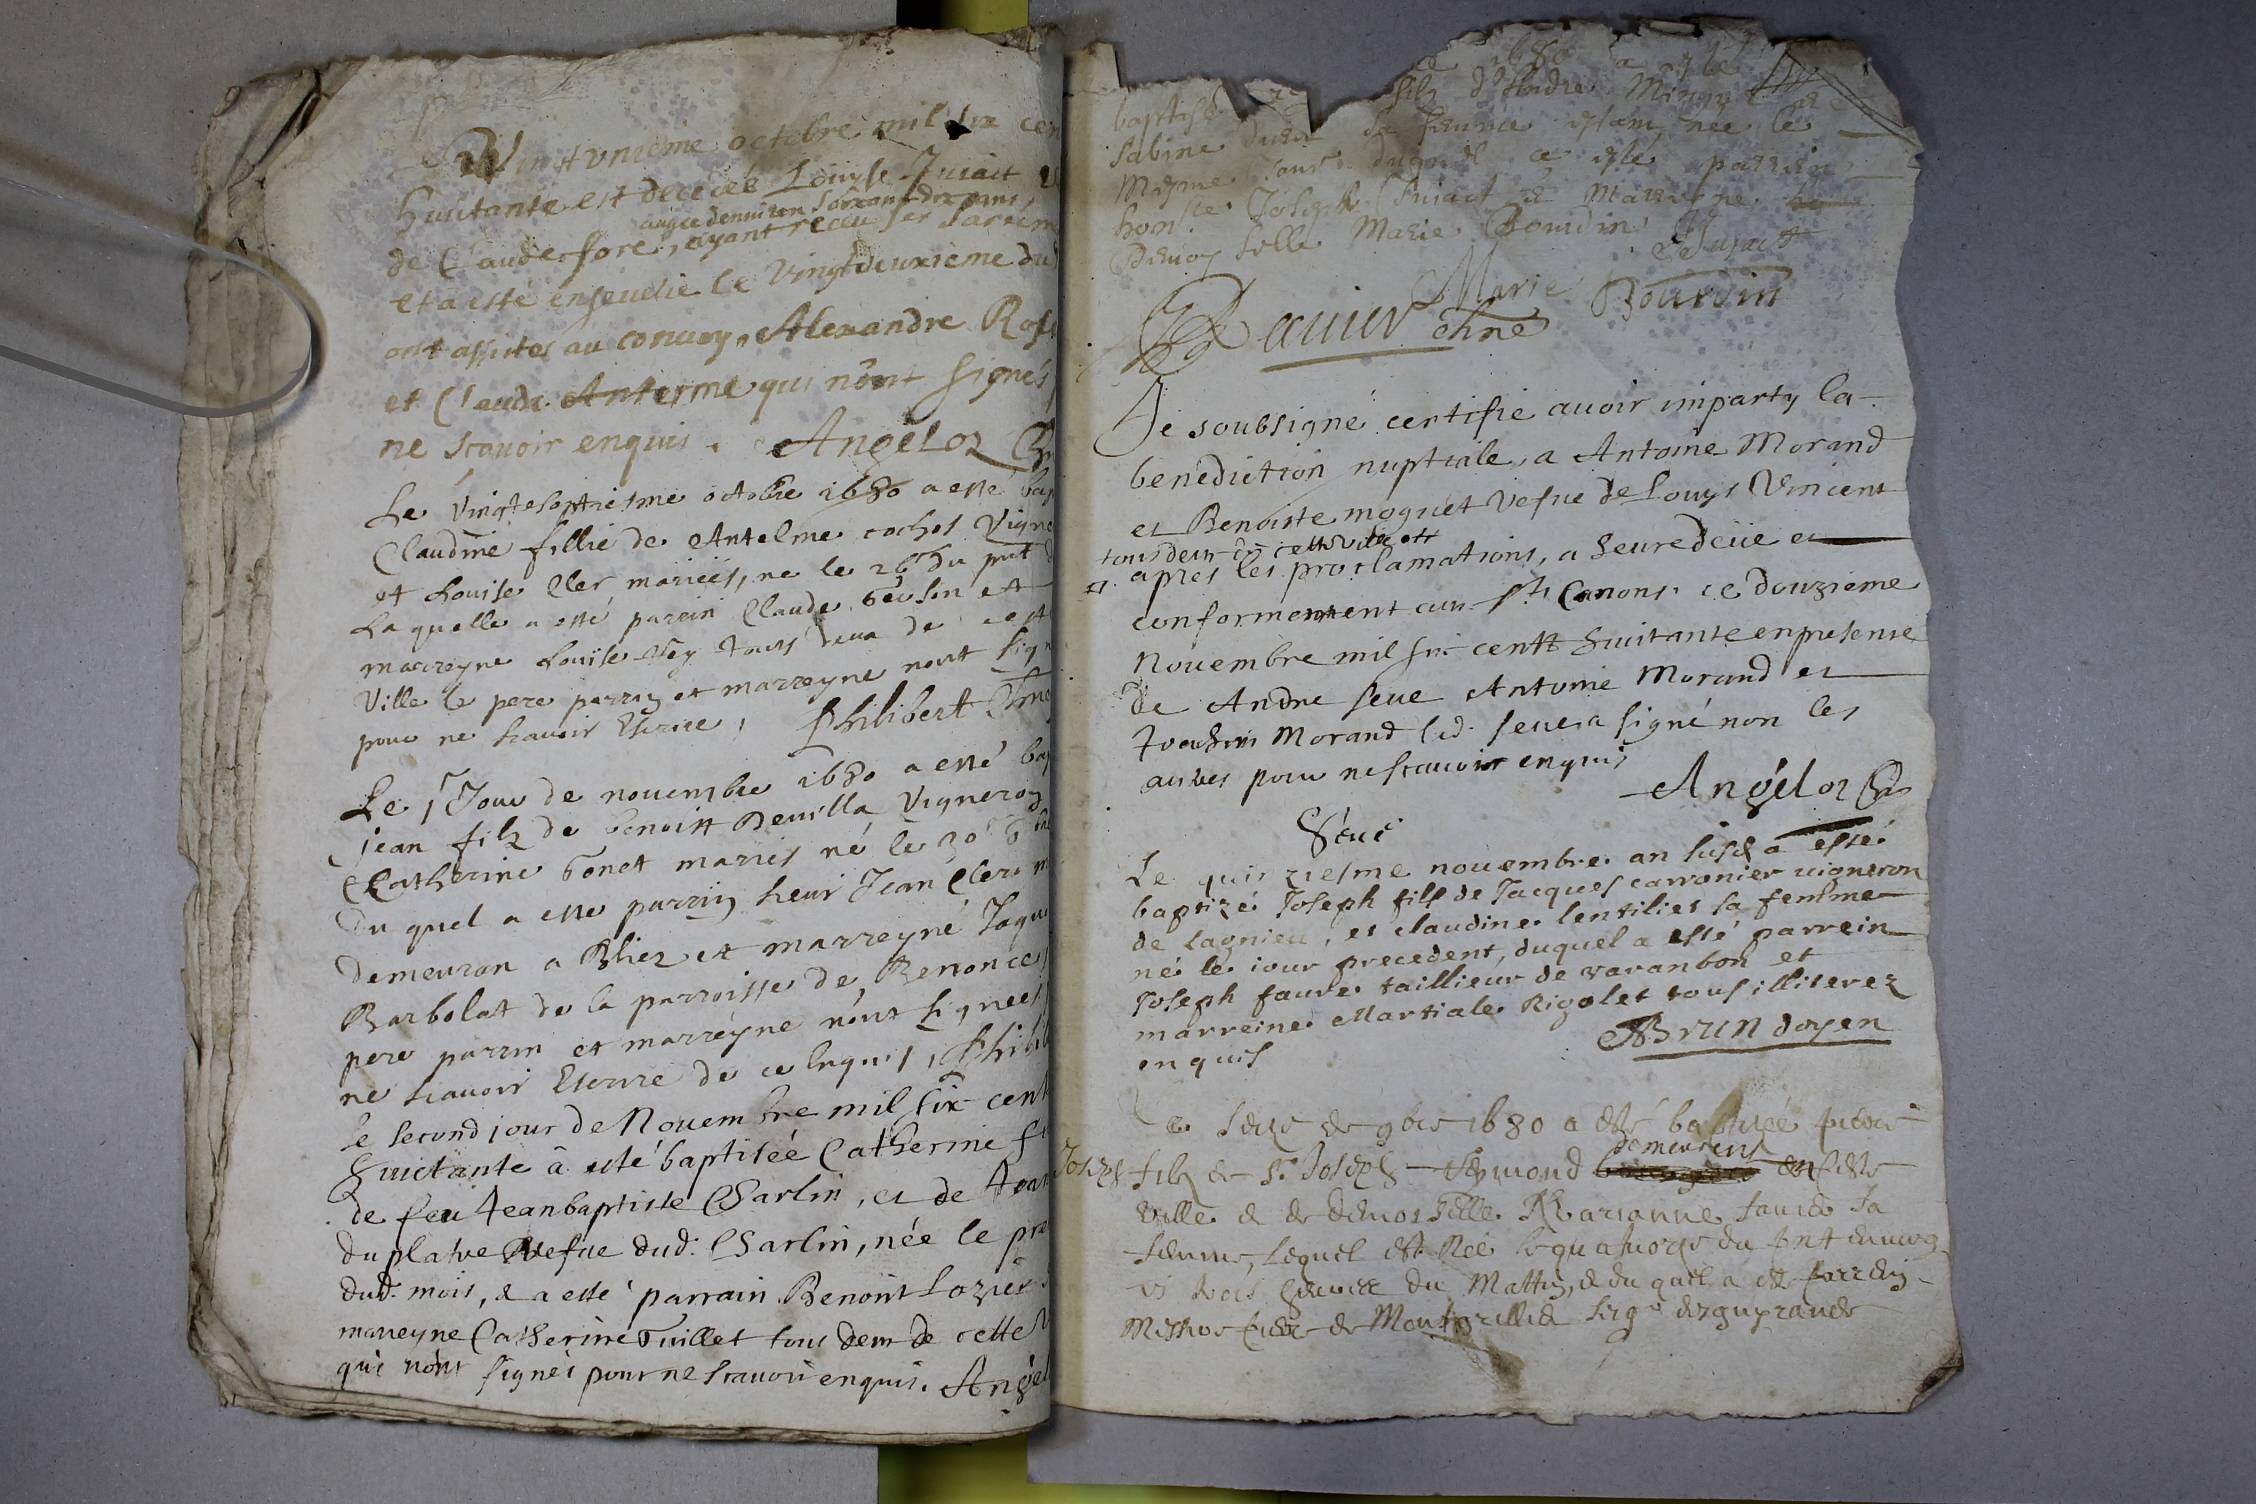 Vingtunième octobre mil six cen
huictante est décédée Louyse Juiait
aagée denuiron soixante dix ans
de Claude fore, ayant receu ser sacrem
et a esté enseuelie le Vingtdeuxième dud
ont assistes au conuoy, Alexandre Ros
et Claude Anterme qui n'ont signés
ne scauoir enquis. Angeloz
Le vingtesептiesme octobre 1680 a esté bap
Claudine fillie de Antelme cochet Vigne
et Louise Cler mariés, ne le 26e du pnt
Laquelle a esté parrin Claude
marreyne Louise Rey tous deux de cest
Ville le pere parrin et marreyne nont sign
pour ne scauoir Escrire, Philibert
Le 1r Jour de nouembre 1680 a esté bap
jean filz de benoist Deuilla Vigneron
Catherine bonet mariés né le 30e
du quel a esté parrin sieur Jean Cler
demeuran a Bliez et marreyne Jaqu
Barbolat de la parroisse de Benonce
pere parrin et marreyne n'ont signees
ne scauoir Escrire de ce Enquis, Phili
le second jour de Nouembre mil six cent
huictante à esté baptisée Catherine f
de feu Jeanbaptiste Charlin, et de Jean
duplatre Vefue dud. Charlin, née le pre
dud. mois, & a esté parrain Benoit Lozier
marreyne Catherine Tuillet tous deux de cette
qui n'ont signés pour ne scauoir enquis. Angel
1680 a esté
baptisé filz d'Andre
Sabine sa femme estant née le
mesme jour duquel a esté parrein
honste Joseph Juiact & Marreyne
Demoyselle Marie Bourdin JJujact
Marie Bourdin
Je soubsigné certifie auoir imparty la
benediction nuptiale, a Antoine Morand
et Benoiste moguet Vefue de Louys Vincent
tous deux de cette ville et
apres les proclamations, a heure deüe et
conformement aux Sts Canons. ce douzieme
Nouembre mil six centt huitante en presence
de Andre seue Antoine Morand et
Joachim Morand led. seue a signé non les
autres pour ne scauoir enquis
Angeloz
Seue
Le quinziesme nouembre an susd a esté
baptizé Joseph fils de Jacques carronier uigneron
de Lagnieu, et claudine lentilies sa femme
né le iour precedent, duquel a esté parrein
Joseph faure taillieur de varanbon et
marreine Martiale Rigolet tous illiterez
enquis
ABrun doyen
Le seize de 9bre 1680 a esté baptizé
demeurent
Joseph filz de Sr Joseph en ceste
ville & de demoiselle Marianne sa
femme, lequel est Née le quatorze du pnt enuiron
les trois heures du Mattin, & duquel a esté parrein
Messire de